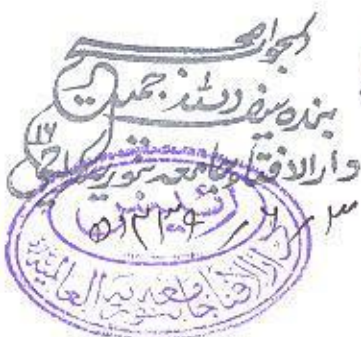 الجواب صحیح
بندہ سیف اللہ جمیل
دارالافتاء جامعہ بنوریہ کراچی
۱۶
۳ / ٦ / ١٤٣٩ھ
رئیس
دارالافتاء جامعہ بنوریہ العالمیہ